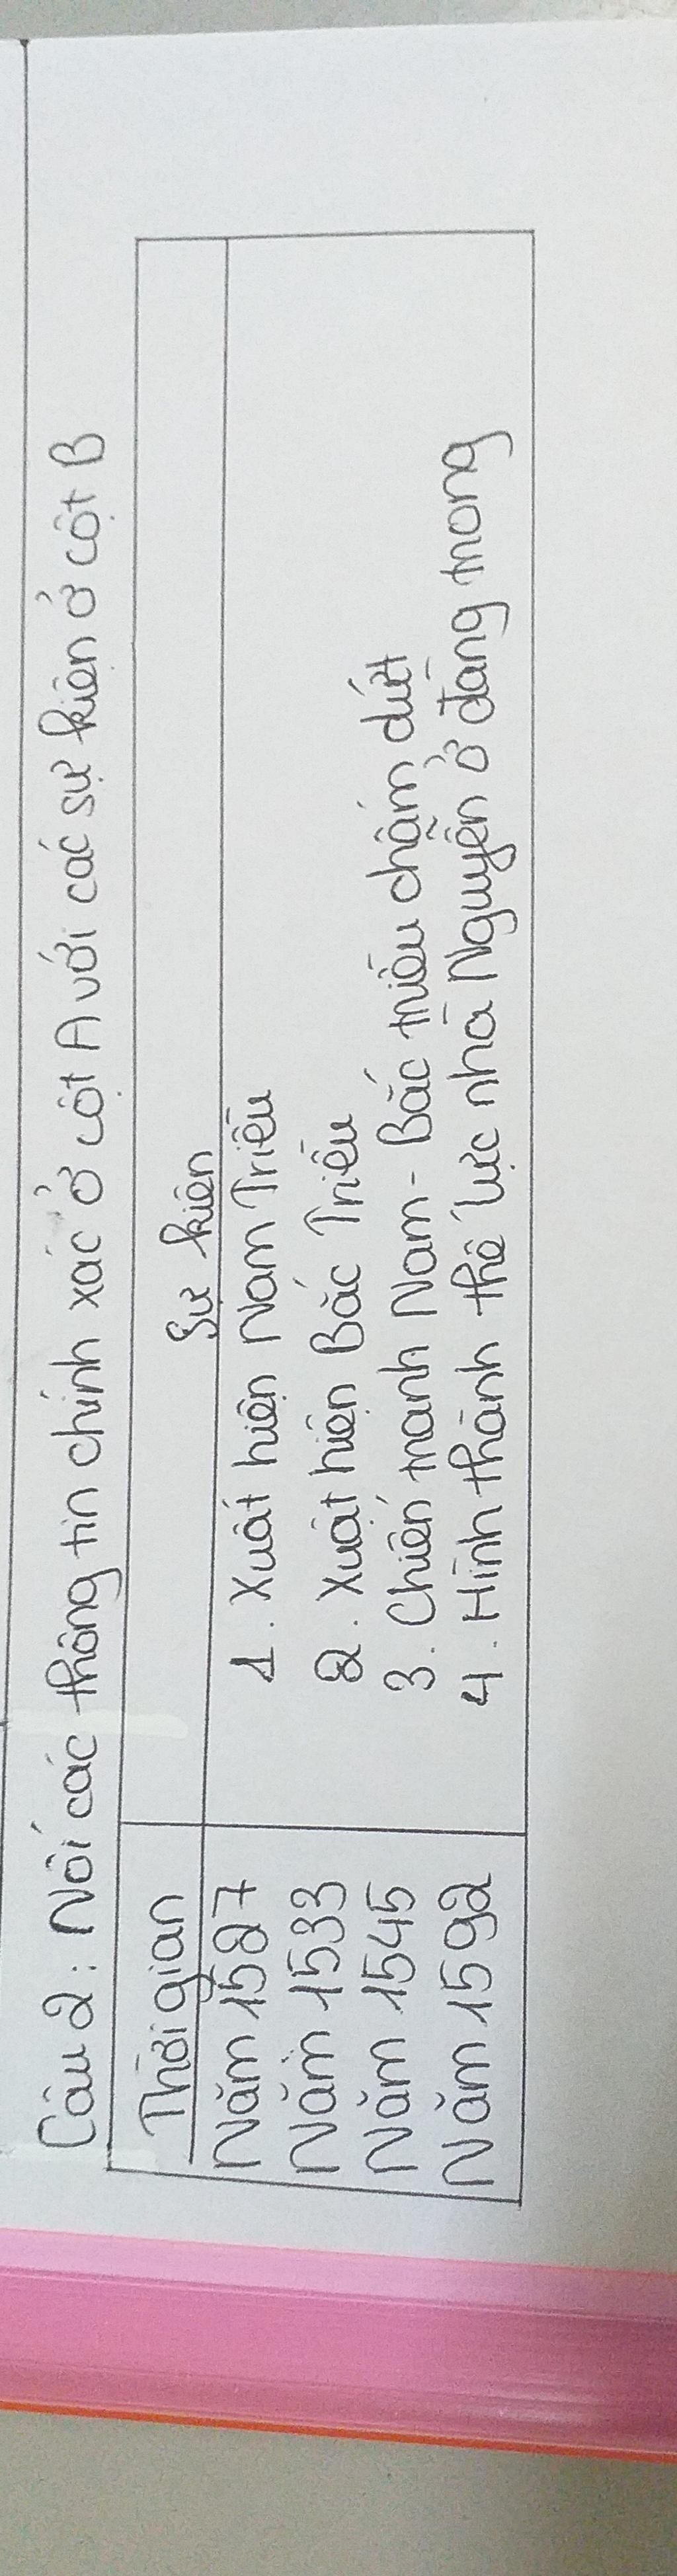 Câu 2: Nối các thông tin chính xác ở cột A với các sự kiện ở cột B
Thời gian Sự kiện
Năm 1527 1. Xuất hiện Nam Triều
Năm 1533 2. Xuật hiện Bắc Triều
Năm 1545 3. Chiến tranh Nam - Bắc triều chấm dứt
Năm 1592 4. Hình thành thế lực nhà Nguyễn ở đàng trong